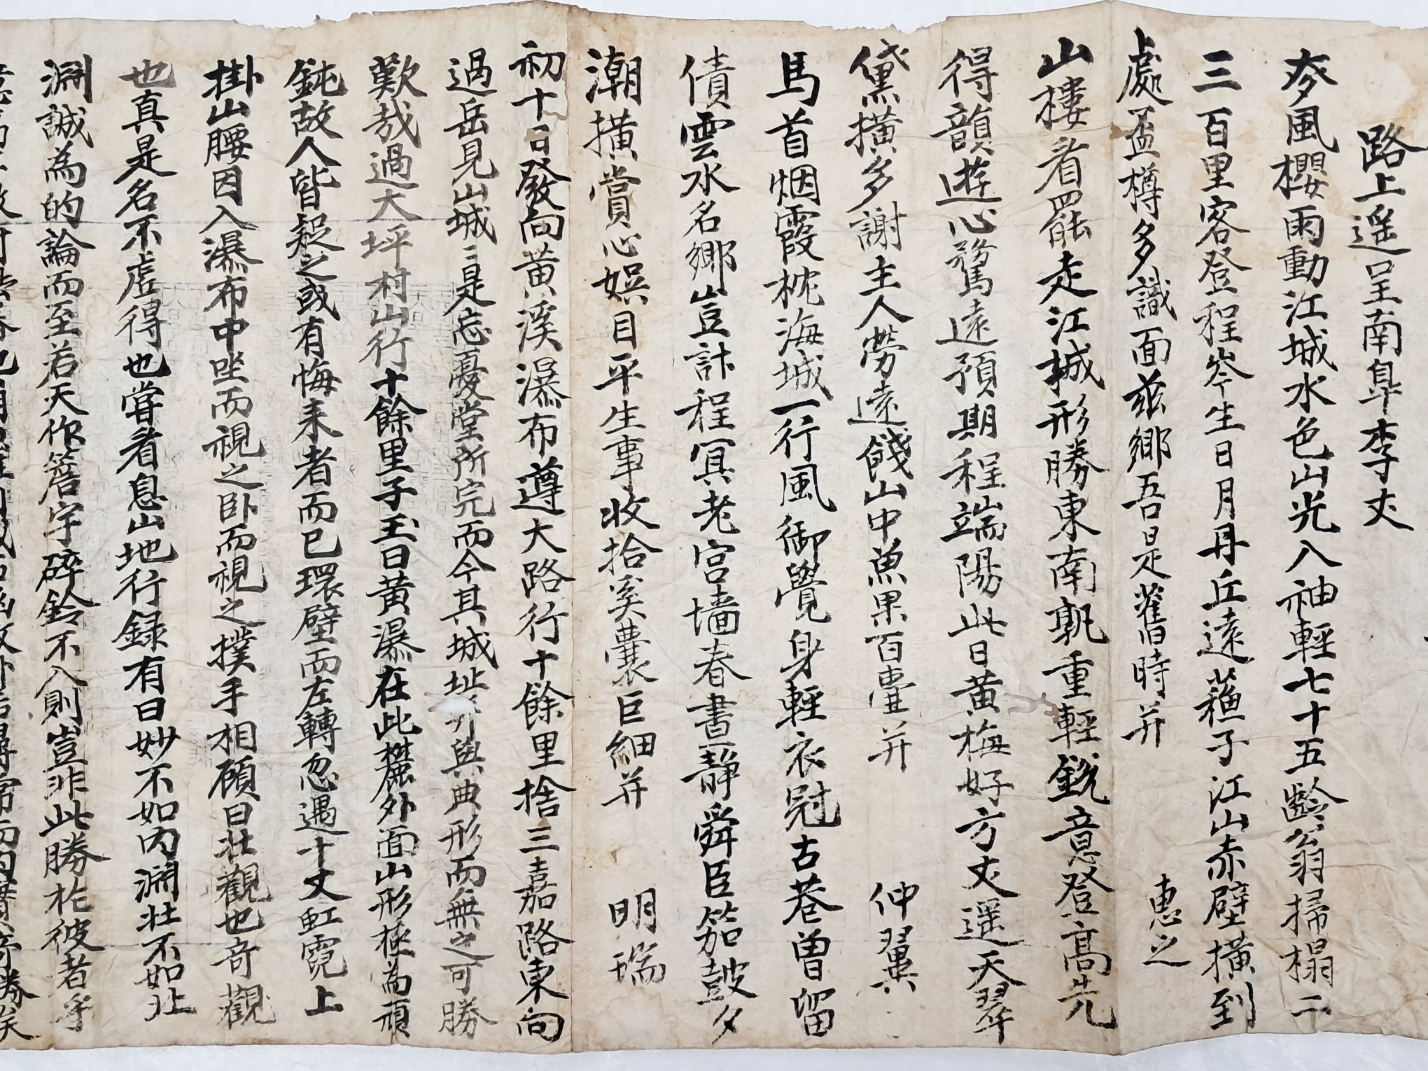 路上遥呈南阜李丈
麥風櫻雨動江城水色山光入袖輕七十五齡翁掃榻二
三百里客登程岑生日月丹丘遠蘓子江山赤壁橫到
處盃樽多識面玆鄉吾是舊時幷 惠之
山樓看罷走江城形勝東南孰重輕銳意登高先
得韻遊心騖遠預期程端陽此日黃梅好方丈遥天翠
黛橫多謝主人勞遠餞山中魚果百壺幷 仲翼
馬首烟霞枕海城一行風御覺身輕衣冠古巷曾留
債雲水名鄉豈計程冥老宮墻春書靜舜臣笳皷夕
潮橫賞心娛目平生事收拾奚囊巨細幷 明瑞
初十日發向黃溪瀑布遵大路行十餘里捨三嘉路東向
過岳見山城〻是忘憂堂所完而今其城址與典形而無之可勝
歎哉過大坪村山行十餘里子玉曰黃瀑在此麓外面山形極為頑
鈍故人皆疑之或有悔来者而已環壁而左轉忽遇十丈虹霓上
掛山腰因入瀑布中坐而視之臥而視之撲手相顧曰壯觀也奇觀
也真是名不虛得也嘗看息山地行録有曰妙不如內淵壯不如北
淵誠為的論而至若天作簷宇碎鈴不入則豈非此勝於彼者乎